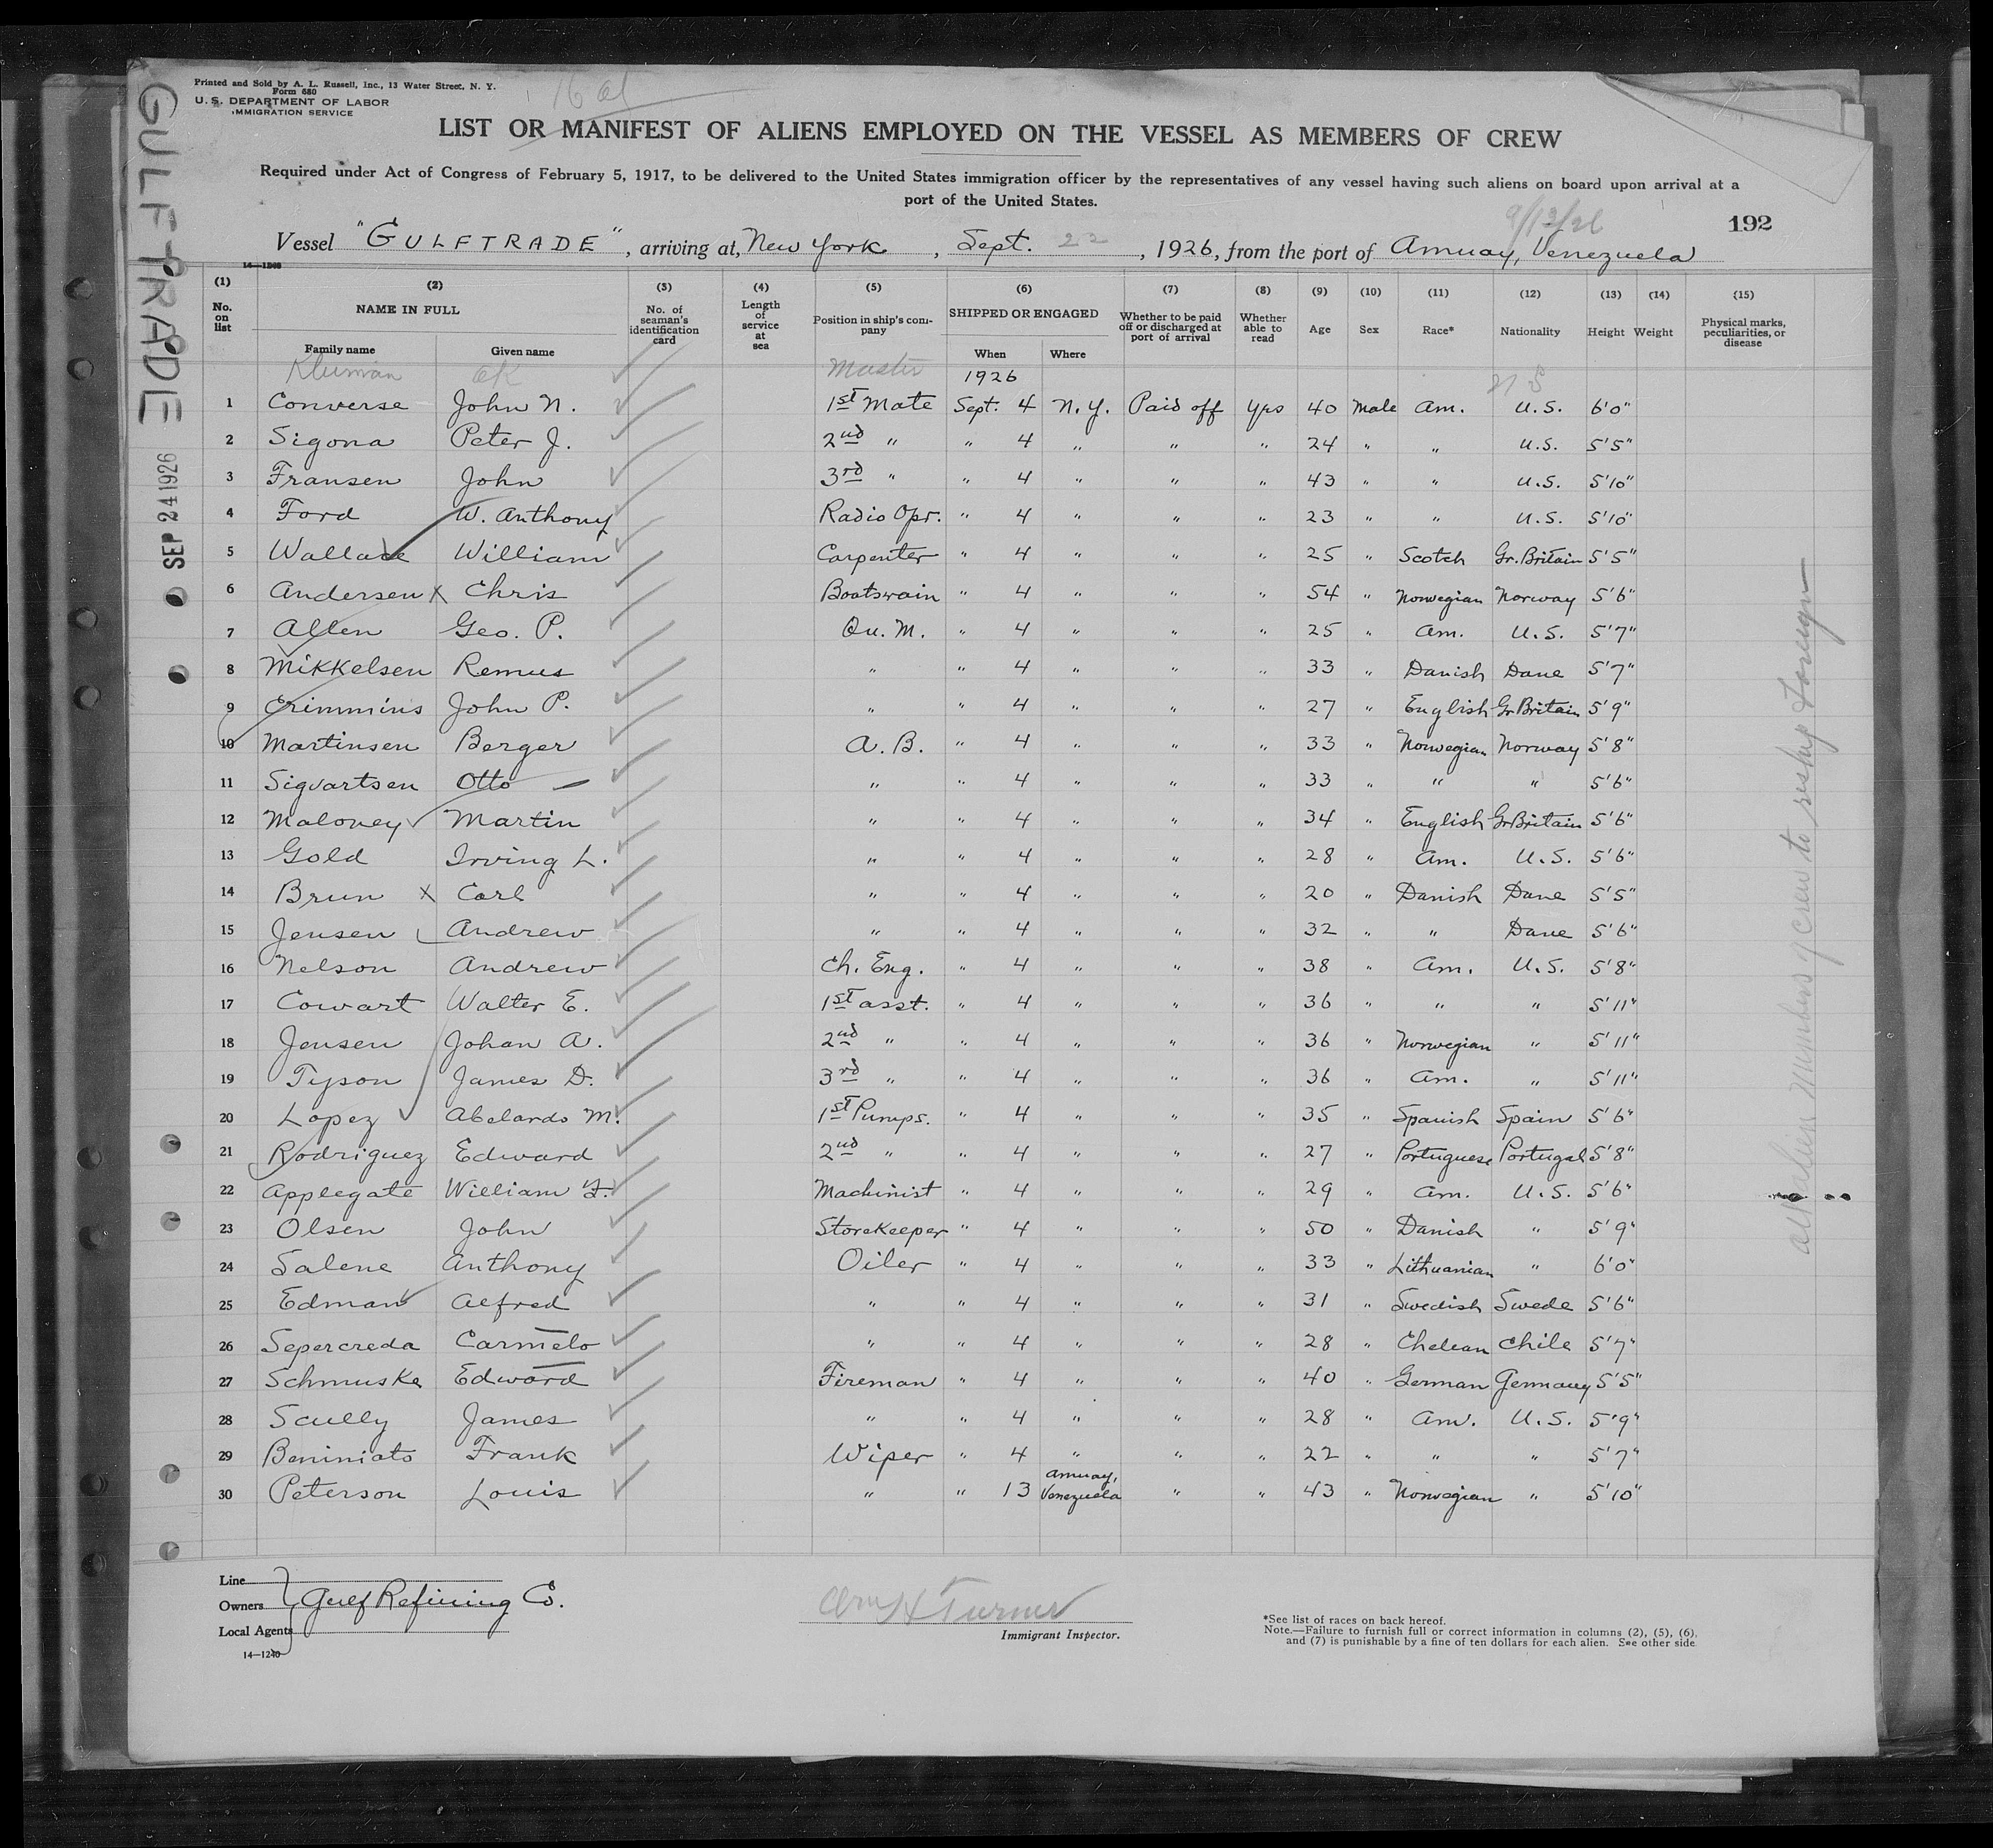 GULFTRADE
SEP 24 1926
Printed and Sold by A. L. Russell, Inc., 13 Water Street, N. Y.
Form 680
U. S. DEPARTMENT OF LABOR
IMMIGRATION SERVICE
LIST OR MANIFEST OF ALIENS EMPLOYED ON THE VESSEL AS MEMBERS OF CREW
Required under Act of Congress of February 5, 1917, to be delivered to the United States immigration officer by the representatives of any vessel having such aliens on board upon arrival at a
port of the United States.
9/13/26
192
Vessel "GULFTRADE", arriving at, New York, Sept. 22, 1926, from the port of Amuay, Venezuela
(1) (2) (3) (4) (5) (6) (7) (8) (9) (10) (11) (12) (13) (14) (15)
No. on list NAME IN FULL No. of seaman's identification card Length of service at sea Position in ship's company SHIPPED OR ENGAGED Whether to be paid off or discharged at port of arrival Whether able to read Age Sex Race* Nationality Height Weight Physical marks, peculiarities, or disease
Family name Given name When Where
OK Master 1926 U S
1 Converse John N. 1st Mate Sept. 4 N.Y. Paid off Yes 40 Male Am. U.S. 6'0"
2 Sigona Peter J. 2nd " " 4 " " " 24 " " U.S. 5'5"
3 Fransen John 3rd " " 4 " " " 43 " " U.S. 5'10"
4 Ford W. Anthony Radio Opr. " 4 " " " 23 " " U.S. 5'10"
5 Wallace William Carpenter " 4 " " " 25 " Scotch Gr. Britain 5'5"
6 Andersen x Chris Boatswain " 4 " " " 54 " Norwegian Norway 5'6"
7 Allen Geo. P. Qu. M. " 4 " " " 25 " Am. U.S. 5'7"
8 Mikkelsen Remus " " 4 " " " 33 " Danish Dane 5'7"
9 Crimmins John P. " " 4 " " " 27 " English Gr Britain 5'9"
10 Martinsen Berger A. B. " 4 " " " 33 " Norwegian Norway 5'8"
11 Sigvartsen Otto " " 4 " " " 33 " " " 5'6"
12 Maloney Martin " " 4 " " " 34 " English Gr Britain 5'6"
13 Gold Irving L. " " 4 " " " 28 " Am. U.S. 5'6"
14 Brun x Carl " " 4 " " " 20 " Danish Dane 5'5"
15 Jensen Andrew " " 4 " " " 32 " " Dane 5'6"
16 Nelson Andrew Ch. Eng. " 4 " " " 38 " Am. U.S. 5'8"
17 Cowart Walter E. 1st asst. " 4 " " " 36 " " " 5'11"
18 Jensen Johan A. 2nd " " 4 " " " 36 " Norwegian " 5'11"
19 Tyson James D. 3rd " " 4 " " " 36 " Am. " 5'11"
20 Lopez Abelardo M. 1st Pumps. " 4 " " " 35 " Spanish Spain 5'6"
21 Rodriguez Edward 2nd " " 4 " " " 27 " Portuguese Portugal 5'8"
22 Applegate William F. Machinist " 4 " " " 29 " Am. U.S. 5'6"
23 Olsen John Storekeeper " 4 " " " 50 " Danish " 5'9"
24 Salene Anthony Oiler " 4 " " " 33 " Lithuanian " 6'0"
25 Edman Alfred " " 4 " " " 31 " Swedish Swede 5'6"
26 Sepercreda Carmelo " " 4 " " " 28 " Chelean Chile 5'7"
27 Schmuske Edward Fireman " 4 " " " 40 " German Germany 5'5"
28 Scully James " " 4 " " " 28 " Am. U.S. 5'9"
29 Beniniato Frank Wiper " 4 " " " 22 " " " 5'7"
30 Peterson Louis " " 13 Amuay, Venezuela " " 43 " Norwegian " 5'10"
all alien members of crew to reship foreign
Line
Owners Gulf Refining Co.
Local Agents
14—1240
Turner
Immigrant Inspector.
*See list of races on back hereof.
Note.—Failure to furnish full or correct information in columns (2), (5), (6),
and (7) is punishable by a fine of ten dollars for each alien. See other side